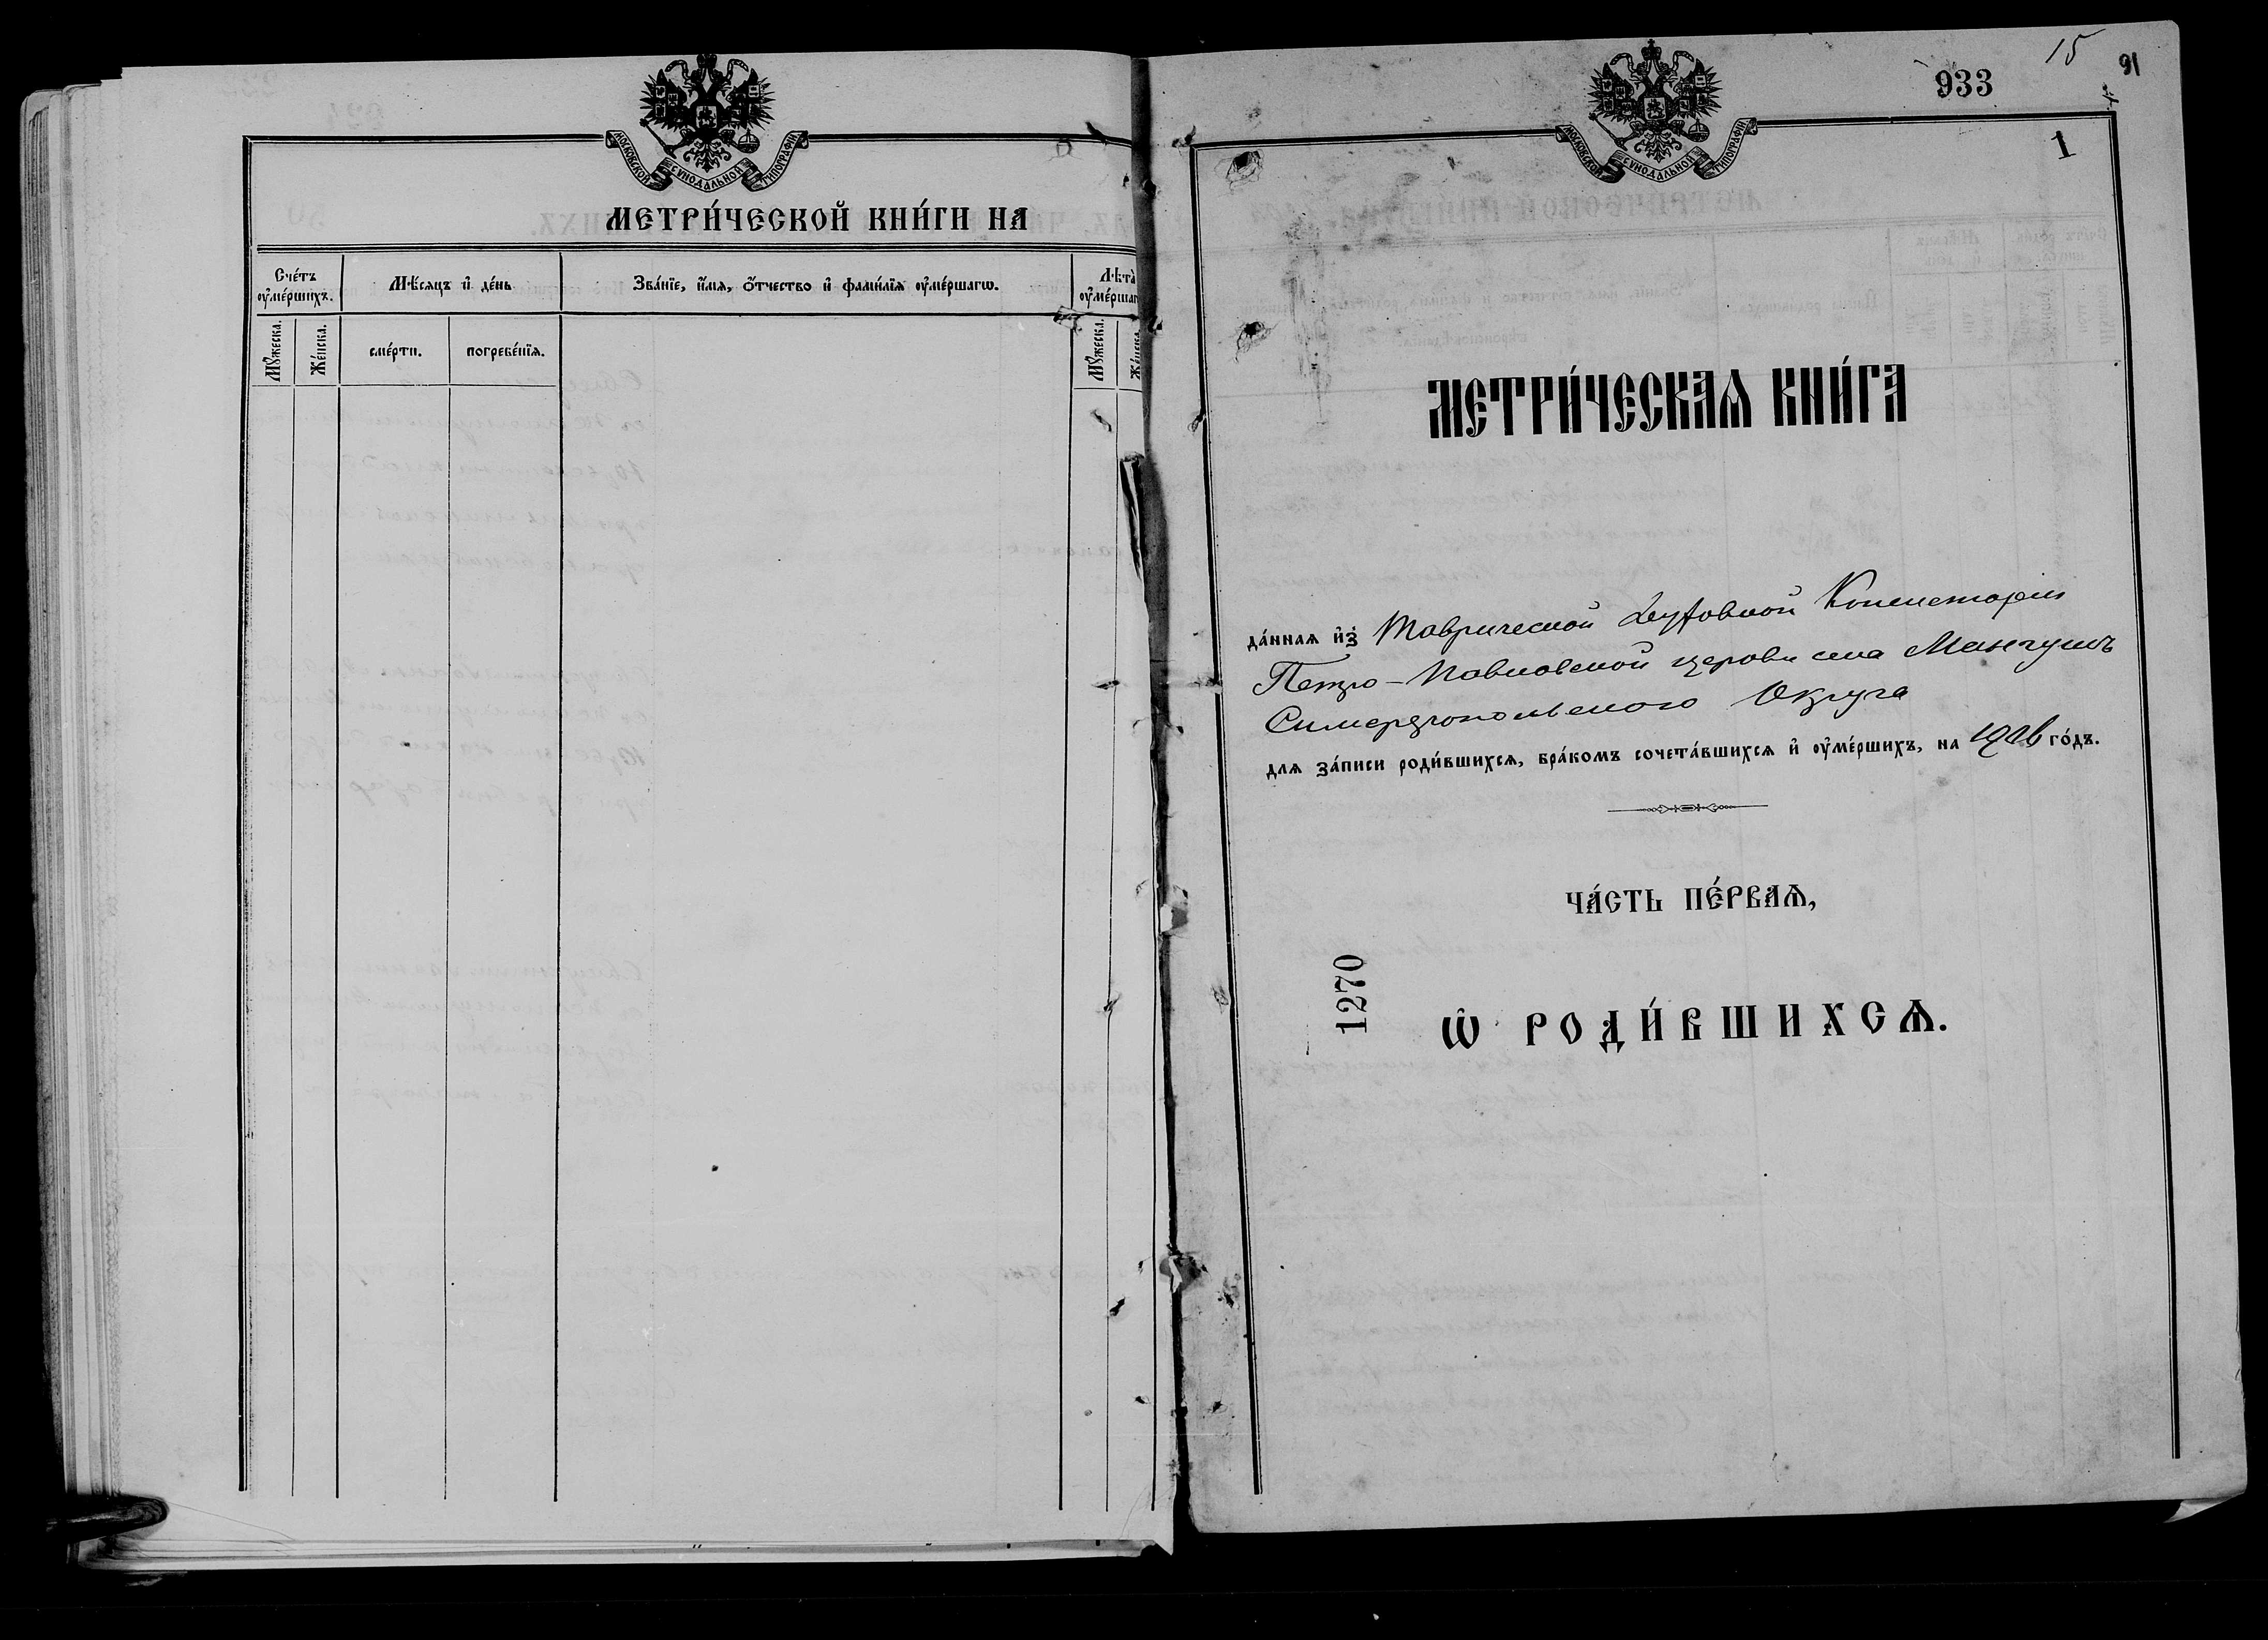 МОСКОВСКОЙ СѴНОДАЛЬНОЙ ТИПОГРАФІИ
МЕТРИ́ЧЕСКОЙ КНИ́ГИ НА
Сче́тъ ᲂу҆ме́ршихъ.
Мѣ́сяцъ и҆ де́нь
Зва́нїе, и҆́мѧ, ѻ҆́тчество и҆ фами́лїѧ ᲂу҆ме́ршагѡ.
Лѣта̀ ᲂу҆ме́ршаг
Мꙋ́жеска.
Же́нска.
сме́рти.
погребе́нїѧ.
Мꙋ́жеска.
Же́нска.
15
91
933
МОСКОВСКОЙ СѴНОДАЛЬНОЙ ТИПОГРАФІИ
1
МЕТРИ́ЧЕСКАѦ КНИ́ГА
да́ннаѧ и҆з̾ Таврической Духовной Консисторіи
Петро-Павловской церкви села Мангушъ
Симферопольского Округа
длѧ за́писи роди́вшихсѧ, бра́комъ сочета́вшихсѧ и҆ ᲂу҆ме́ршихъ, на го́дъ.
ЧА́СТЬ ПЕ́РВАѦ,
1270
Ѽ РОДИ́ВШИХСѦ.